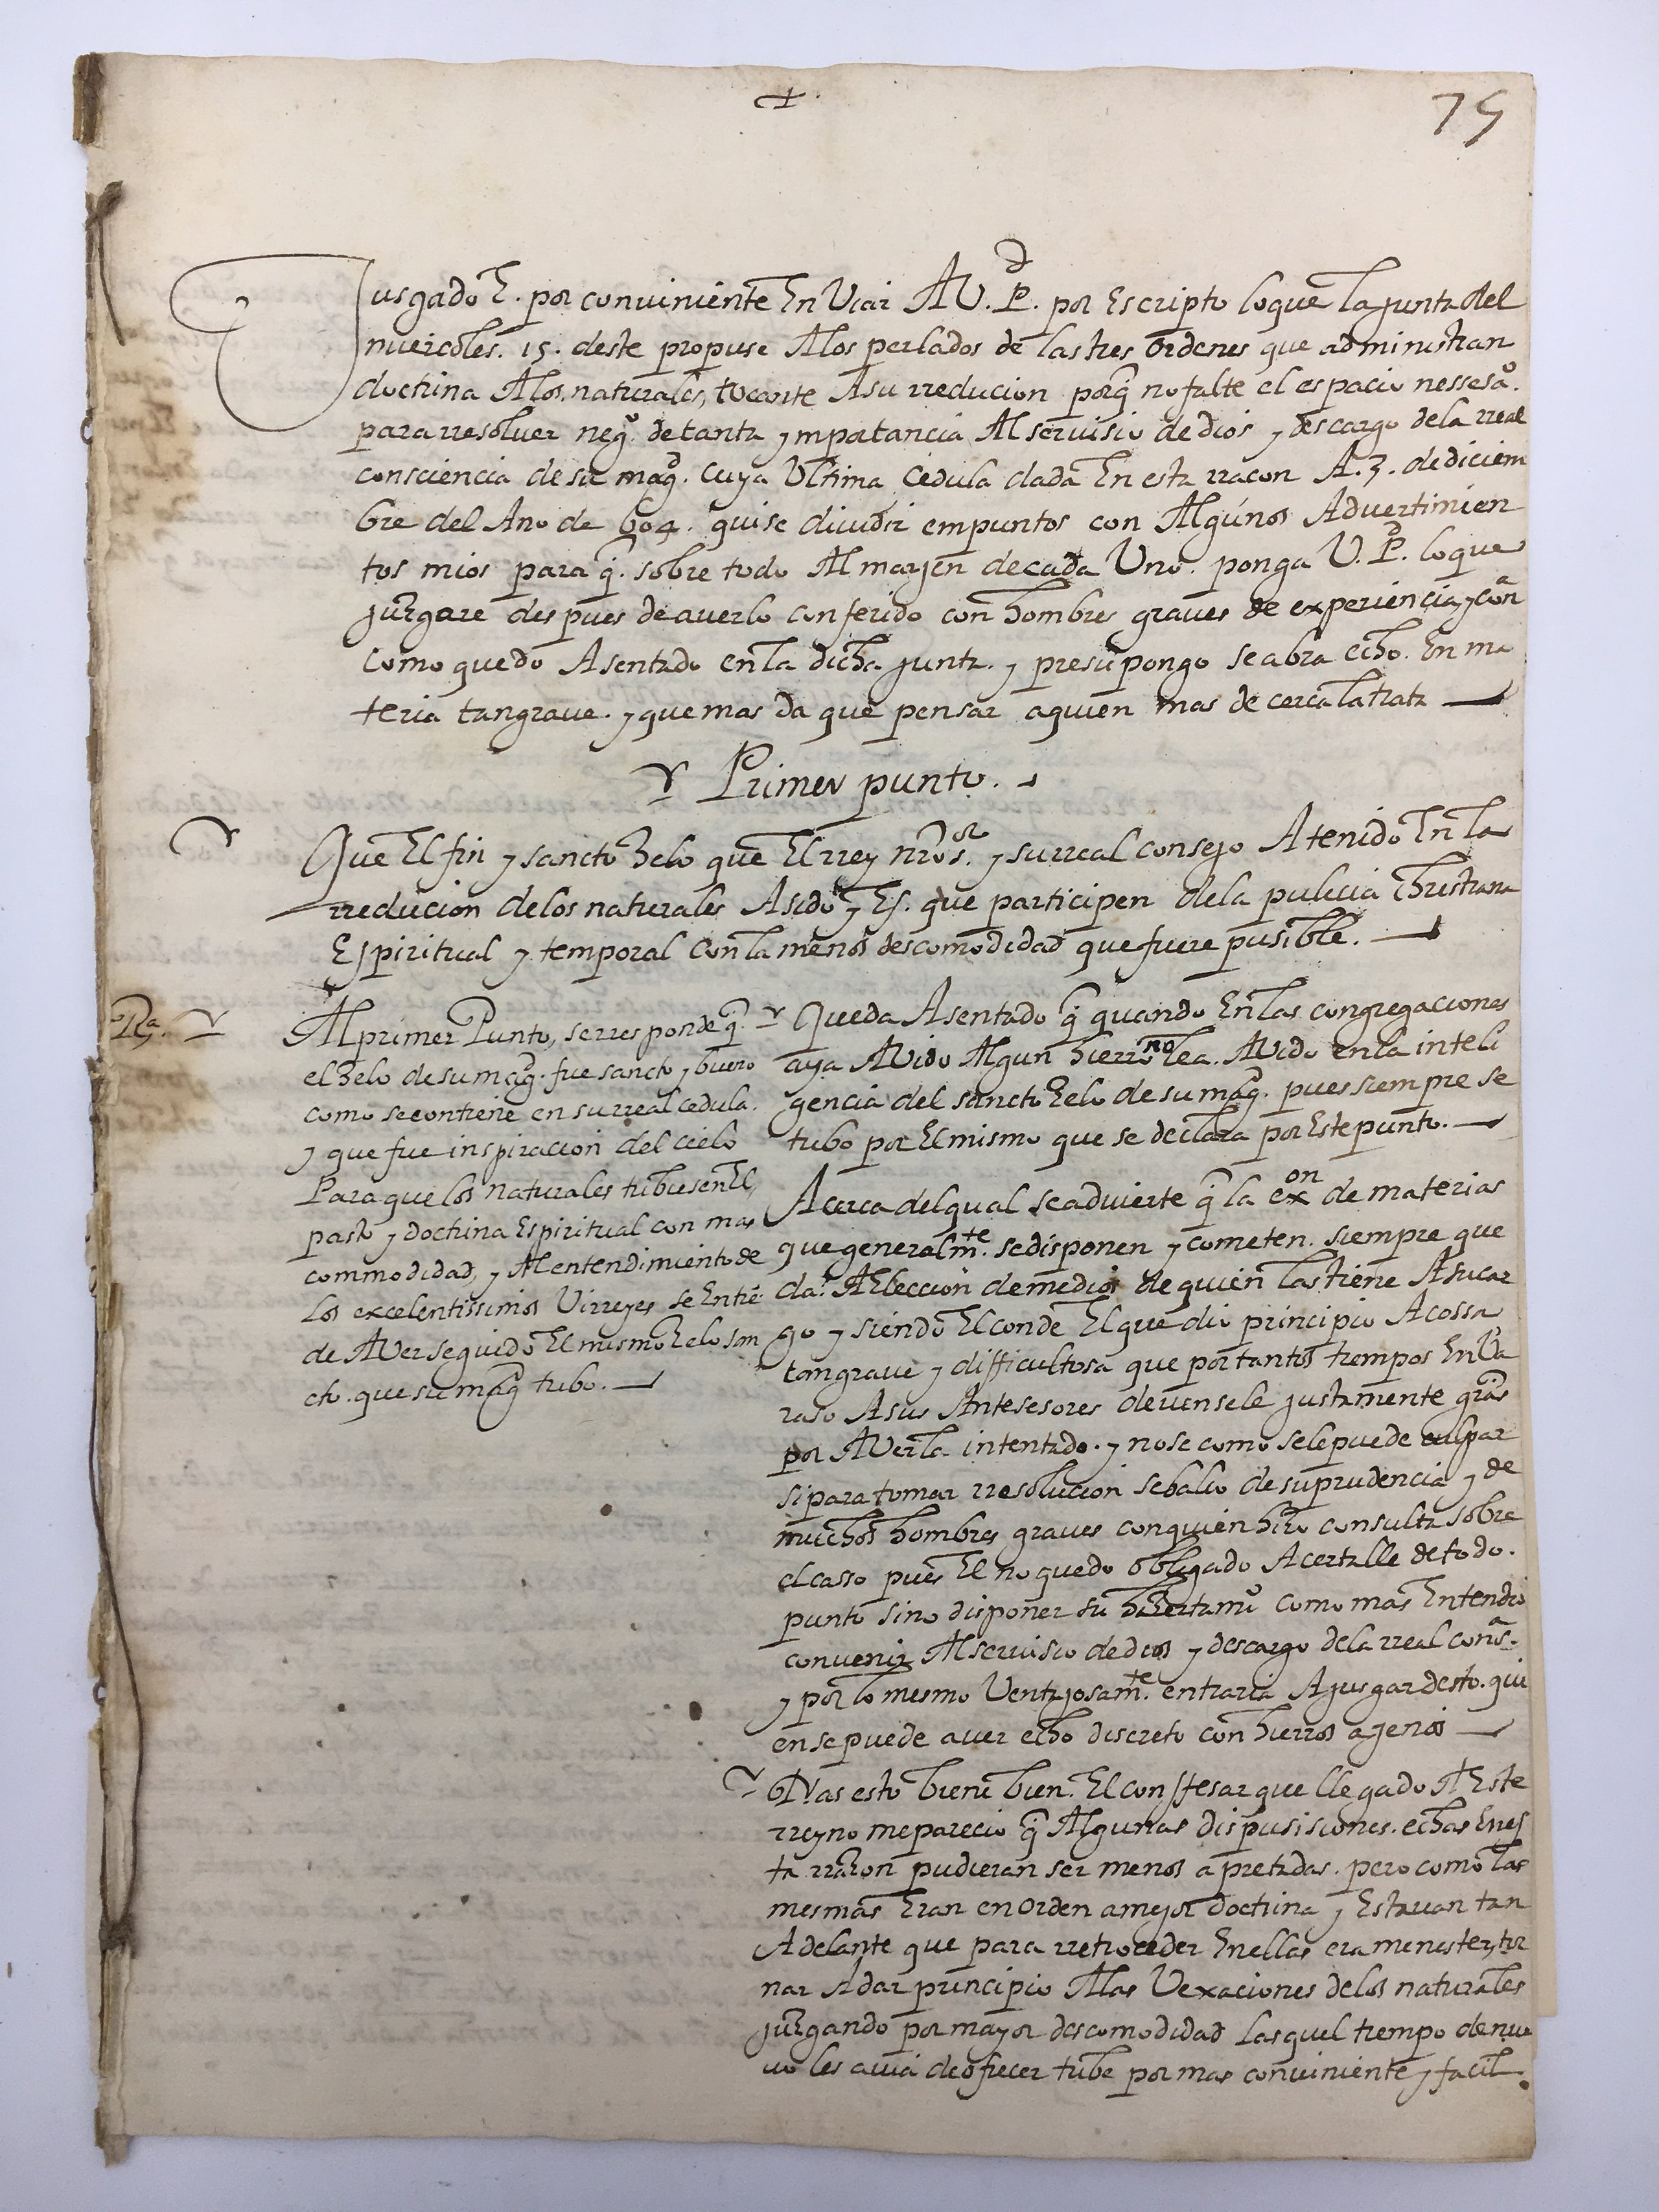 75
Jusgado E. por conviniente En Viar A V. P.d por Escripto loque la junta del
miercoles. 15. deste propuse A los perlados de las tres ordenes que administran
doctrina A los naturales, tocante A su rreducion porq̃ no falte el espacio nessesº.
para rresolver negº. de tanta ymportancia Al servisio de dios y descargo de la rreal
consciencia de su magd. cuya Ultima cedula dada En esta rracon A. 3. de diciem
bre del Ano de 604. quise dividir em puntos con Algunos Advertimien
tos mios para q̃. sobre todo Al marjen de cada Uno. ponga V. P.d loque
juzgare despues de averlo conferido con hombres graves de experiencia y cona
como quedo Asentado en la dicha junta. y presupongo se abra echo. En ma
teria tan grave. y que mas da que pensar a quien mas de cerca la trata
Primer punto.
Que El fin y sancto Zelo que El rrey nro sor. y su rreal consejo A tenido En la
rreducion de los naturales A sido y Es. que participen de la pulicia Christiana
Espiritual y temporal con la menos descomodidad que fuere pusible.
Ra. Al primer Punto, se rresponde q̃.
el Zelo de su magd. fue sancto y bueno
como se contiene en su rreal cedula.
y que fue inspiracion del cielo
Para que los naturales tubiesen El
pasto y doctrina Espiritual con mas
commodidad, y Al entendimiento de
los excelentissimos Virreyes se Entie
de AVer seguido El mismo Zelo san
cto. que su magd tubo.
Queda Asentado q̃ quando En las congregaciones
aya AVido Algun hierro no lea. AVido en la inteli
gencia del sancto Zelo de su magd. pues siempre se
tubo por El mismo que se declara por Este punto.
Acerca del qual se advierte q̃ la exon de materias
que generalmte. se disponen y cometen. siempre que
da. A Eleccion de medios de quien las tiene A su car
go y siendo El conde El que dio principio A cossa
tan grave y difficultosa que por tantos tiempos Enba
raso A sus Antesesores devensele justamente gras
por AVerla intentado. y no se como se le puede culpar
si para tomar rresolucion se balio de su prudencia y de
muchos hombres graves con quien hizo consulta sobre
el casso pues El no quedo obligado A certalle de todo.
punto sino disponer su como mas Entendio
convenir Al servisio de dios y descargo de la rreal consa.
y por lo mesmo Ventajosamte. entraria A jusgar desto. qui
en se puede aver echo discreto con hierros ajenos
Mas esto biene bien. El conffesar que llegado A Este
rreyno me parecio q̃ Algunas dispusisiones. echas En es
ta rrazon pudieran ser menos apretadas. pero como las
mesmas Eran en orden a mejor doctrina y Estavan tan
Adelante que para rretroceder En ellas era menester tor
nar A dar principio A las Vexaciones de los naturales
juzgando por mayor descomodidad las quel tiempo de nue
vo les avia de ofrecer tube por mas conviniente y facil.